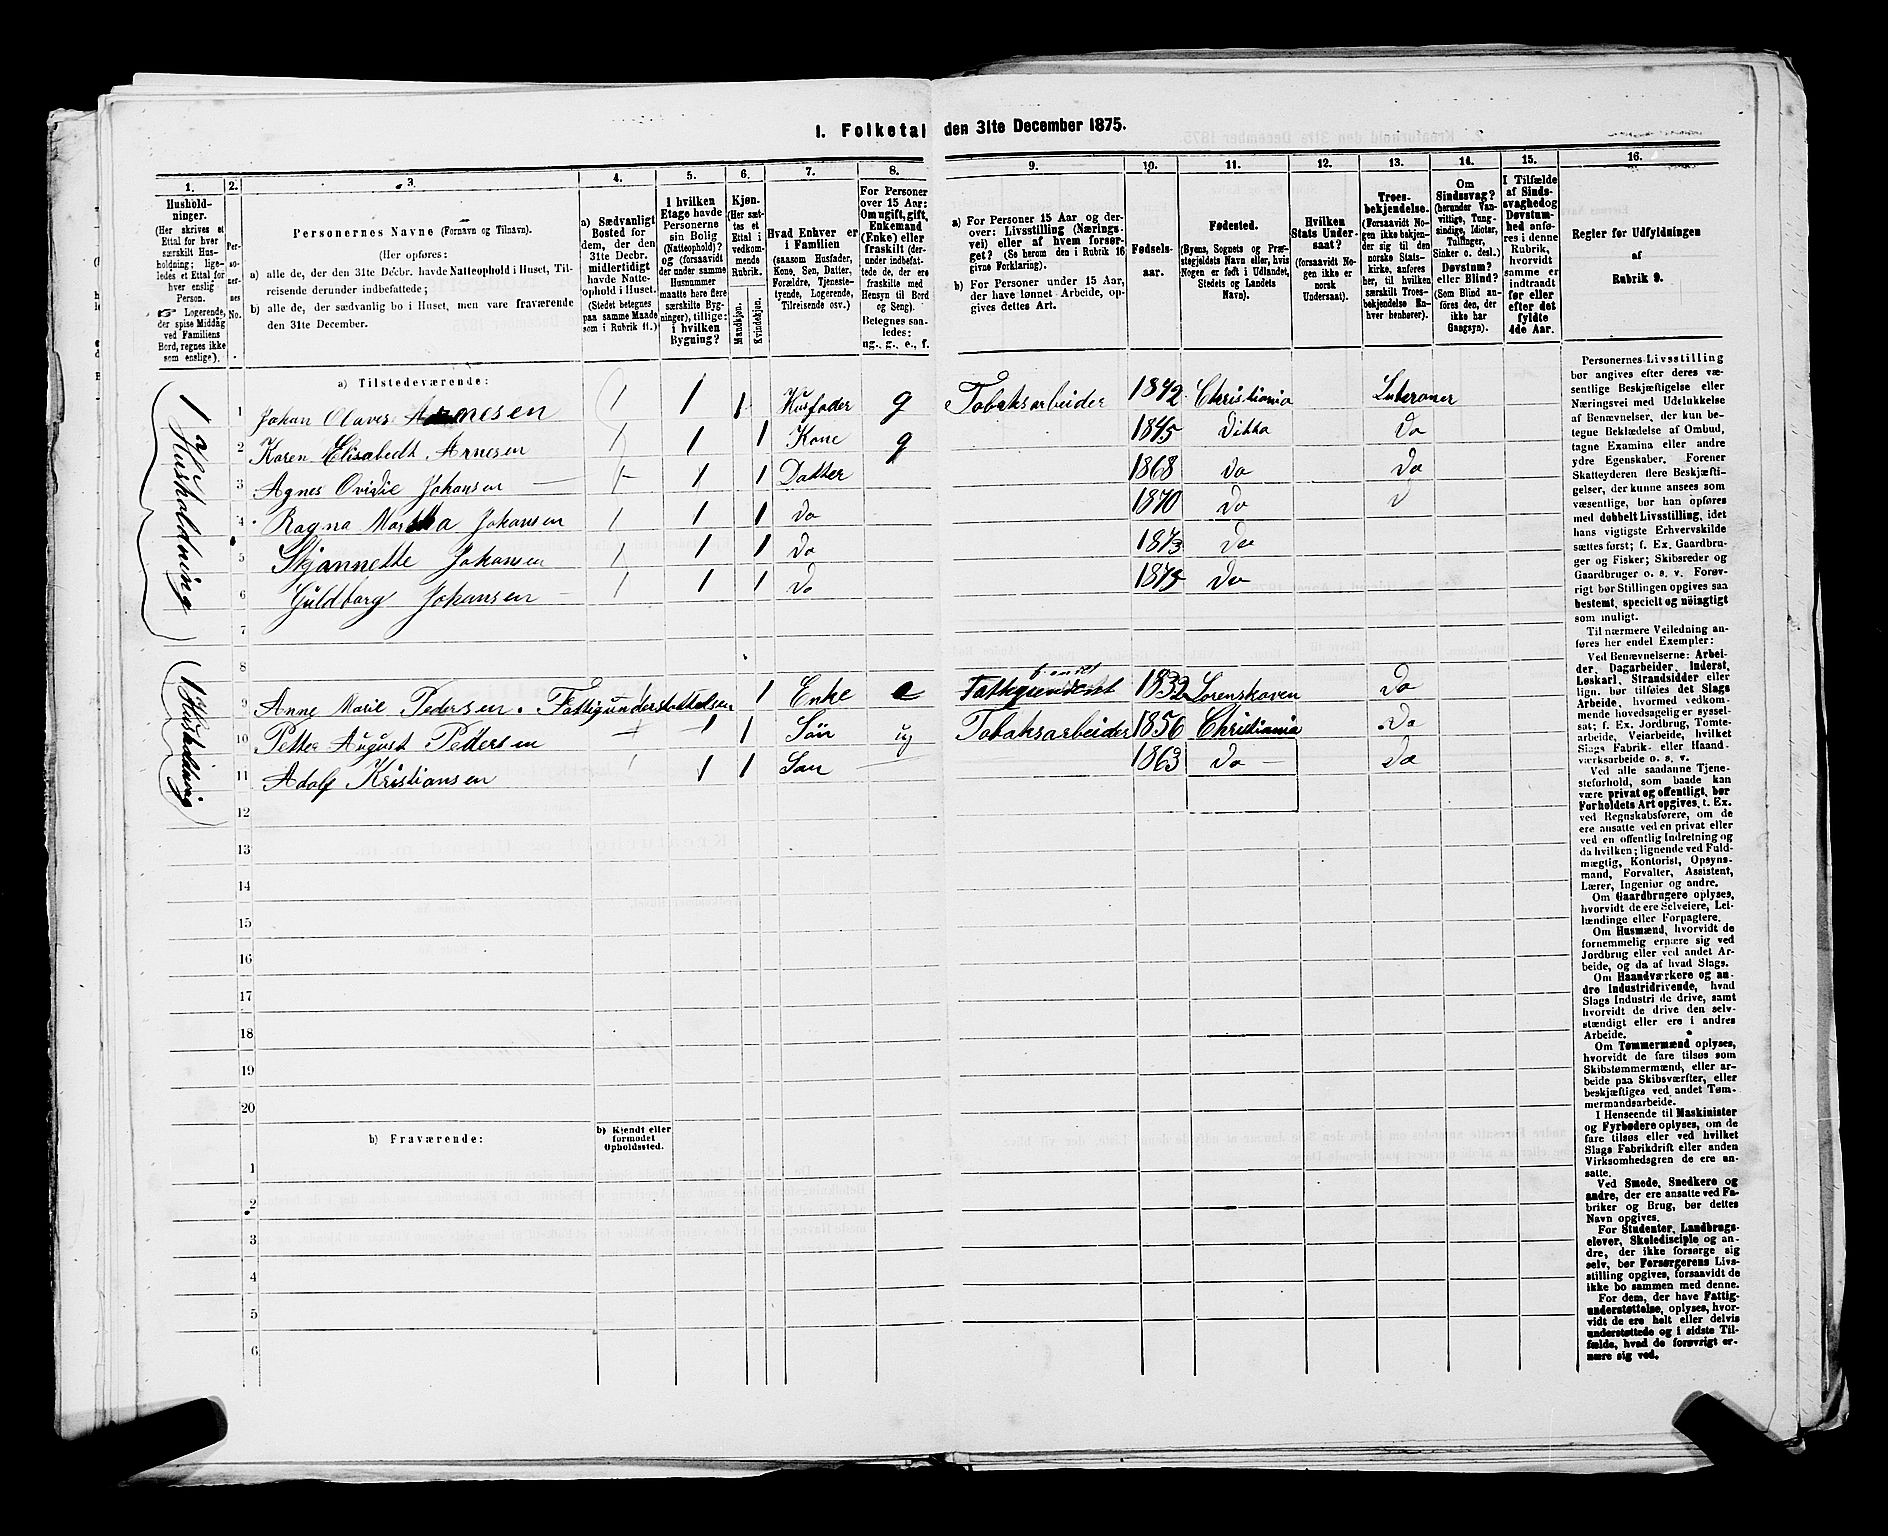 I. Folketal den 31te December 1875.
1. 2. 3. 4. 5. 6. 7. 8. 9. 10. 11. 12. 13. 14. 15. 16.
Hushold-
ninger.
(Her skrives et
Ettal for hver
særskilt Hus-
holdning; lige-
ledes et Ettal for
hver enslig
Person.
☞ Logerende,
der spise Middag
ved Familiens
Bord, regnes ikke
som enslige).
Per-
so-
ner-
nes
No.
Personernes Navne (Fornavn og Tilnavn).
(Her opføres:
a) alle de, der den 31te Decbr. havde Natteophold i Huset, Til-
reisende derunder indbefattede;
b) alle de, der sædvanlig bo i Huset, men vare fraværende
den 31te December.
a) Sædvanligt
Bosted for
dem, der den
31te Decbr.
midlertidigt
havde Natte-
ophold i Huset.
(Stedet betegnes
paa samme Maade
som i Rubrik 11.)
I hvilken
Etage havde
Personerne
sin Bolig
(Natteophold)?
og (forsaavidt
der under samme
Husnummer
maatte høre flere
særskilte Byg-
ninger), tillige:
i hvilken
Bygning?
Kjøn.
(Her sæt-
tes et
Ettal i
vedkom-
mende
Rubrik.
Mandkjøn.
Kvindekjøn.
Hvad Enhver er
i Familien
(saasom Husfader,
Kone, Søn, Datter,
Forældre, Tjeneste-
tyende, Logerende,
Tilreisende osv.)
For Personer
over 15 Aar:
Om ugift, gift,
Enkemand
(Enke) eller
fraskilt (der-
under indbefat-
tede de, der ere
fraskilte med
Hensyn til Bord
og Seng).
Betegnes saa-
ledes:
ug., g., e., f.
a) For Personer 15 Aar og der-
over: Livsstilling (Nærings-
vei) eller af hvem forsør-
get? (Se herom den i Rubrik 16
givne Forklaring).
b) For Personer under 15 Aar,
der have lønnet Arbeide, op-
gives dettes Art.
Fødsels-
aar.
Fødested.
(Byens, Sognets og Præ-
stegjeldets Navn eller, hvis
Nogen er født i Udlandet,
Stedets og Landets
Navn).
Hvilken
Stats Under-
saat?
(forsaavidt No-
gen ikke er
norsk
Undersaat).
Troes-
bekjendelse.
(Forsaavidt No-
gen ikke bekjen-
der sig til den
norske Stats-
kirke, anføres
her, til hvilken
særskilt Troes-
bekjendelse En-
hver henhører).
Om
Sindssvag?
(herunder Van-
vittige, Tung-
sindige, Idioter,
Tullinger,
Sinker o. desl.)
Døvstum?
eller Blind?
(Som Blind an-
føres den, der
ikke har
Gangsyn).
I Tilfælde
af Sinds-
svaghed og
Døvstum-
hed anfø-
res i denne
Rubrik,
hvorvidt
samme er
indtraadt
før eller
efter det
fyldte
4de Aar.
Regler for Udfyldningen
af
Rubrik 9.
a) Tilstedeværende:
1 Husholdning
1 Johan Olaves Arnesen 1 1 Husfader g Tobaksarbeider 1842 Christiania Luteraner
2 Karen Elisabedt Arnesen 1 1 Kone g 1845 Ditto Do
3 Agnes Ovidie Johansen 1 1 Datter 1868 Do Do
4 Ragna Johansen 1 1 1 Do 1870 Do
5 Johansen 1 1 1 Do 1873 Do
6 Guldborg Johansen 1 1 1 Do 1875 Do
7
8
1 Husholdning
9 Anne Marie Pedersen. Fattigunderstøttelsen 1 Enke e 1832 Do
10 Petter August Pedersen 1 1 Søn ug Tobaksarbeider 1856 Christiania Do
11 Adolf Kristiansen 1 1 1 Søn 1863 Do Do
12
13
14
15
16
17
18
19
20
b) Fraværende:
b) Kjendt eller
formodet
Opholdssted.
1
2
3
4
5
6
Personernes Livsstilling
bør angives efter deres væ-
sentlige Beskjæftigelse eller
Næringsvei med Udelukkelse
af Benævnelser, der kun be-
tegne Beklædelse af Ombud,
tagne Examina eller andre
ydre Egenskaber. Forener
Skatteyderen flere Beskjæfti-
gelser, der kunne ansees som
væsentlige, bør han opføres
med dobbelt Livsstilling, idet
hans vigtigste Erhvervskilde
sættes først; f. Ex. Gaardbru-
ger og Fisker; Skibsreder og
Gaardbruger o. s. v. Forøv-
rigt bør Stillingen opgives saa
bestemt, specielt og nøiagtigt
som muligt.
Til nærmere Veiledning an-
føres her endel Exempler:
Ved Benævnelserne: Arbei-
der, Dagarbeider, Inderst,
Løskarl, Strandsidder eller
lign. bør tilføies det Slags
Arbeide, hvormed vedkom-
mende hovedsagelig er syssel-
sat; f. Ex. Jordbrug, Tomte-
arbeide, Veiarbeide, hvilket
Slags Fabrik- eller Haand-
værksarbeide o. s. v.
Ved alle saadanne Tjene-
steforhold, som baade kan
være privat og offentligt, bør
Forholdets Art opgives, t. Ex.
ved Regnskabsførere, om de
ere ansatte ved en privat eller
ved en offentlig Indretning og
da hvilken; lignende ved Fuld-
mægtig, Kontorist, Opsyns-
mand, Forvalter, Assistent,
Lærer, Ingeniør og andre.
Om Gaardbrugere oplyses,
hvorvidt de ere Selveiere, Lei-
lændinge eller Forpagtere.
Om Husmænd, hvorvidt de
fornemmelig ernære sig ved
Jordbrug eller ved andet Ar-
beide, og da af hvad Slags.
Om Haandværkere og an-
dre Industridrivende, hvad
Slags Industri de drive, samt
hvorvidt de drive den selv-
stændigt eller ere i andres
Arbeide.
Om Tømmermænd oplyses,
hvorvidt de fare tilsøs som
Skibstømmermænd, eller ar-
beide paa Skibsværfter, eller
beskjæftiges ved andet Tøm-
mermandsarbeide.
I Henseende til Maskinister
og Fyrbødere oplyses, om de
fare tilsøs eller ved hvilket
Slags Fabrikdrift eller anden
Virksomhedsgren de ere an-
satte.
Ved Smede, Snedkere og
andre, der ere ansatte ved Fa-
briker og Brug, bør dettes
Navn opgives.
For Studenter, Landbrugs-
elever, Skoledisciple og an-
dre, der ikke forsørge sig
selv, bør Forsørgerens Livs-
stilling opgives, forsaavidt de
ikke bo sammen med denne.
For dem, der have Fattig-
understøttelse, oplyses, hvor-
vidt de ere helt eller delvis
understøttede og i sidste Til-
fælde, hvad de forøvrigt er-
nære sig ved.